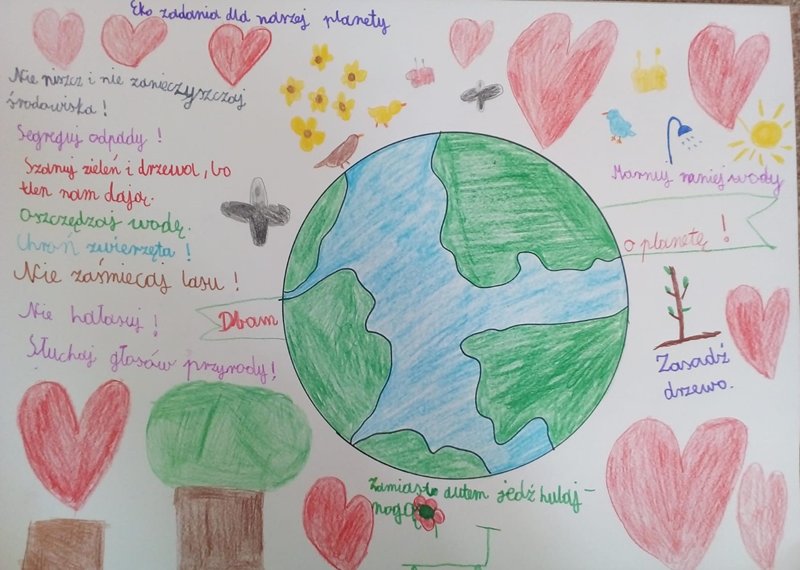 Eko zadania dla naszej planety
Nie niszcz i nie zanieczyszczaj
środowiska!
Segreguj odpady!
Szanuj zieleń i drzewa, bo
tlen nam dają.
Oszczędzaj wodę.
Chroń zwierzęta!
Nie zaśmiecaj lasu!
Nie hałasuj!
Słuchaj głosów przyrody!
Dbam
o planetę!
Marnuj mniej wody
Zasadź
drzewo.
Zamiast autem jedź hulaj-
nogą